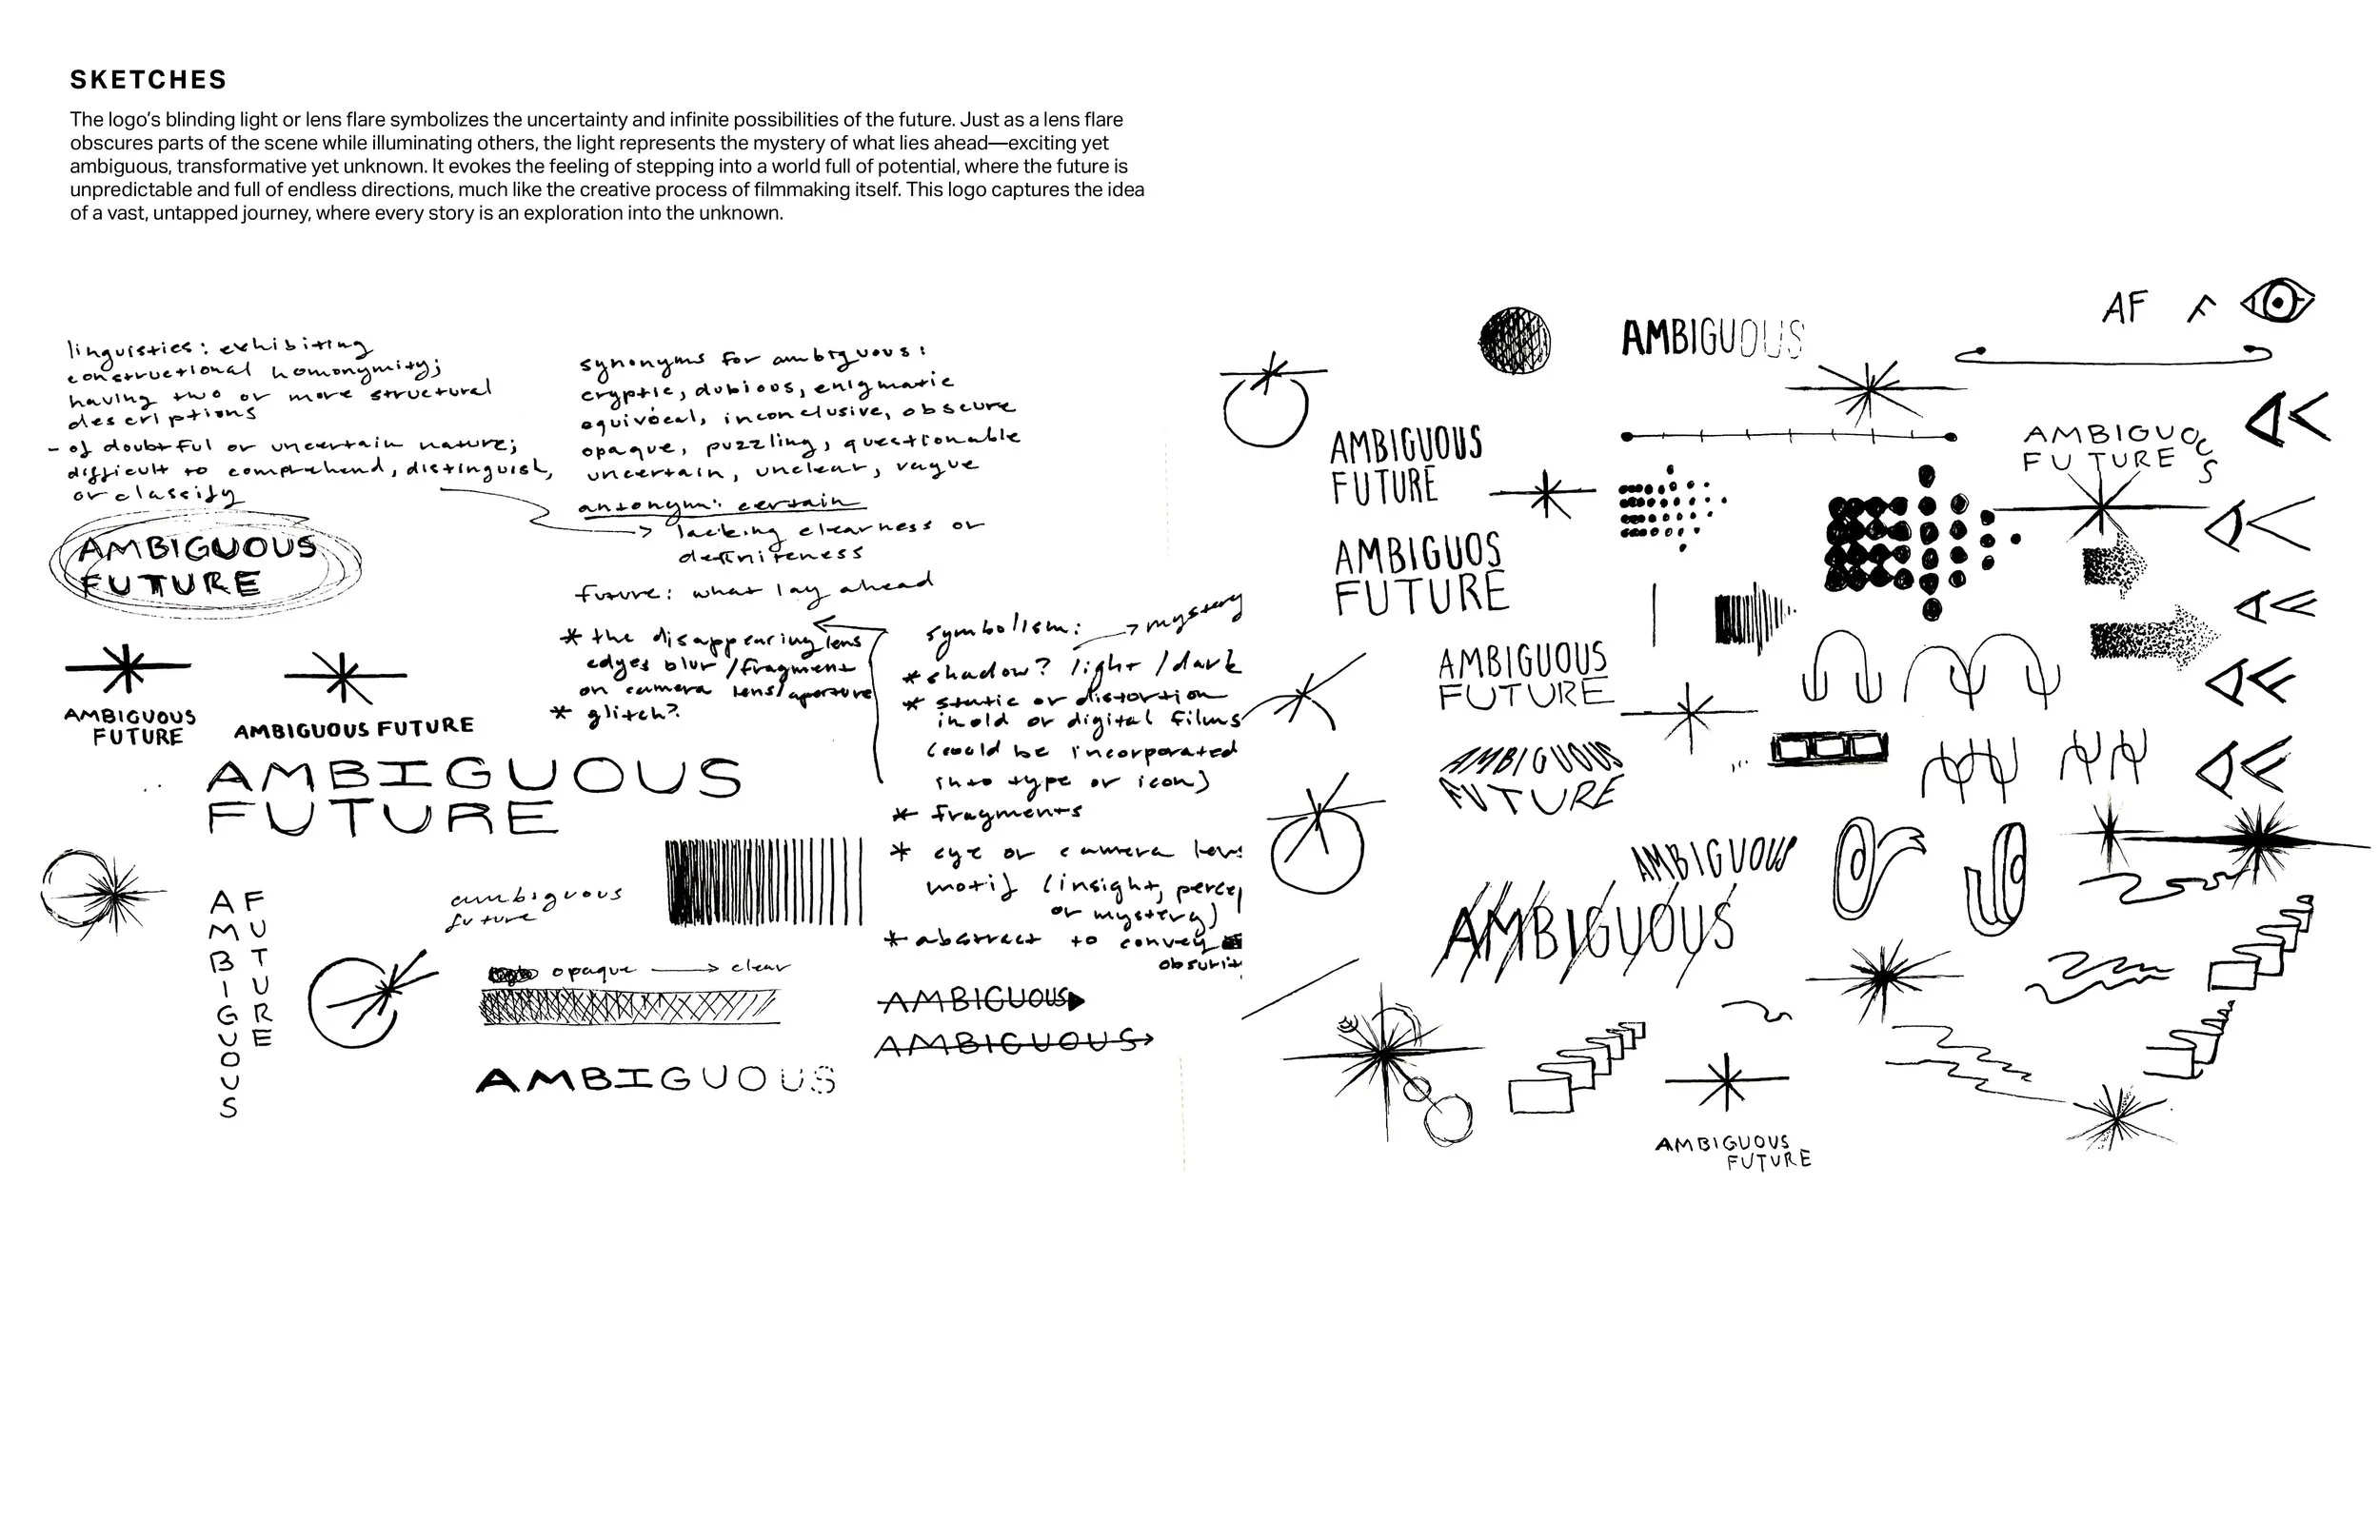 SKETCHES
The logo’s blinding light or lens flare symbolizes the uncertainty and infinite possibilities of the future. Just as a lens flare
obscures parts of the scene while illuminating others, the light represents the mystery of what lies ahead—exciting yet
ambiguous, transformative yet unknown. It evokes the feeling of stepping into a world full of potential, where the future is
unpredictable and full of endless directions, much like the creative process of filmmaking itself. This logo captures the idea
of a vast, untapped journey, where every story is an exploration into the unknown.
linguistics: exhibiting
constructional homonymity;
having two or more structural
descriptions
- of doubtful or uncertain nature;
difficult to comprehend, distinguish,
or classify
AMBIGUOUS
FUTURE
AMBIGUOUS
FUTURE
AMBIGUOUS FUTURE
AMBIGUOUS
FUTURE
AMBIGUOUS
FUTURE
ambiguous
future
opaque → clear
AMBIGUOUS
synonyms for ambiguous:
cryptic, dubious, enigmatic
equivocal, inconclusive, obscure
opaque, puzzling, questionable
uncertain, unclear, vague
antonym: certain
→ lacking clearness or
definiteness
future: what lay ahead
* the disappearing lens
edges blur / fragment
on camera lens/aperture
* glitch?
symbolism: → mystery
* shadow? light / dark
* static or distortion
in old or digital films
(could be incorporated
into type or icon)
* fragments
* eye or camera lens
motif (insight, percep
or mystery)
* abstract to convey
obsurit
AMBIGUOUS
AMBIGUOUS
AMBIGUOUS
AF F
AMBIGUOUS
FUTURE
AMBIGUOUS
FUTURE
AMBIGUOS
FUTURE
AMBIGUOUS
FUTURE
AMBIGUOUS
FUTURE
AMBIGUOUS
AMBIGUOUS
AMBIGUOUS
FUTURE